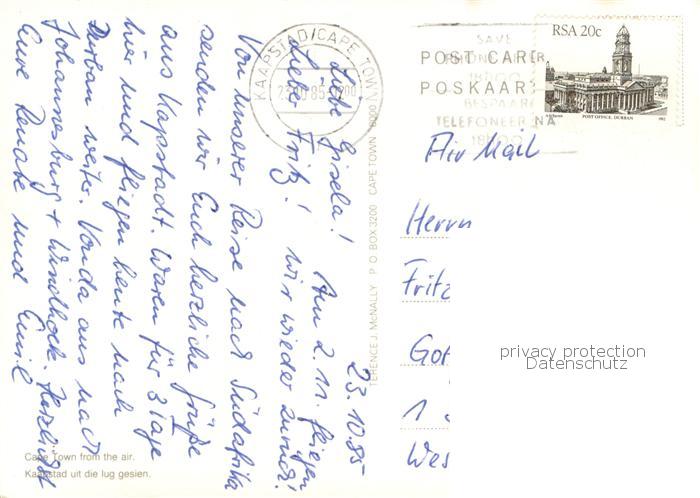 23.10.85
Liebe Gisela! Am 2. 11. fliegen
Lieber Fritz! wir wieder zurück!
Von unserer Reise nach Südafrika
senden wir Euch herzliche Grüße
aus Kapstadt. Waren für 3 Tage
hier und fliegen heute nach
Durban weiter. Von da aus nach
Johannesburg + Windhoek. Herzlichst
Eure Renate und Emil
Cape Town from the air.
Kaapstad uit die lug gesien.
TERENCE J. McNALLY P O BOX 3200 CAPE TOWN 8000
KAAPSTAD/CAPE TOWN
SAVE
PHONE AFTER
18h00
BESPAAR
TELEFONEER NA
18h00
POST CARD
POSKAART
RSA 20c
POST OFFICE, DURBAN
1982
Air Mail
Herrn
Fritz
Got
1
Wes
privacy protection
Datenschutz